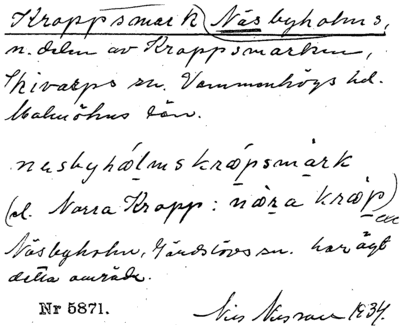 Kroppsmark (Näsbyholms,
n. delen av Kroppsmarken,
Skivarps sn. Vemmenhögs hd.
Malmöhus län.
nasbyhólmskrǿpsmark
(el. Norra Kropp: nǿra krǿp)
Näsbyholm, Gärdslövs sn. har ägt
detta område.
Nr 5871.
Nils 1934.